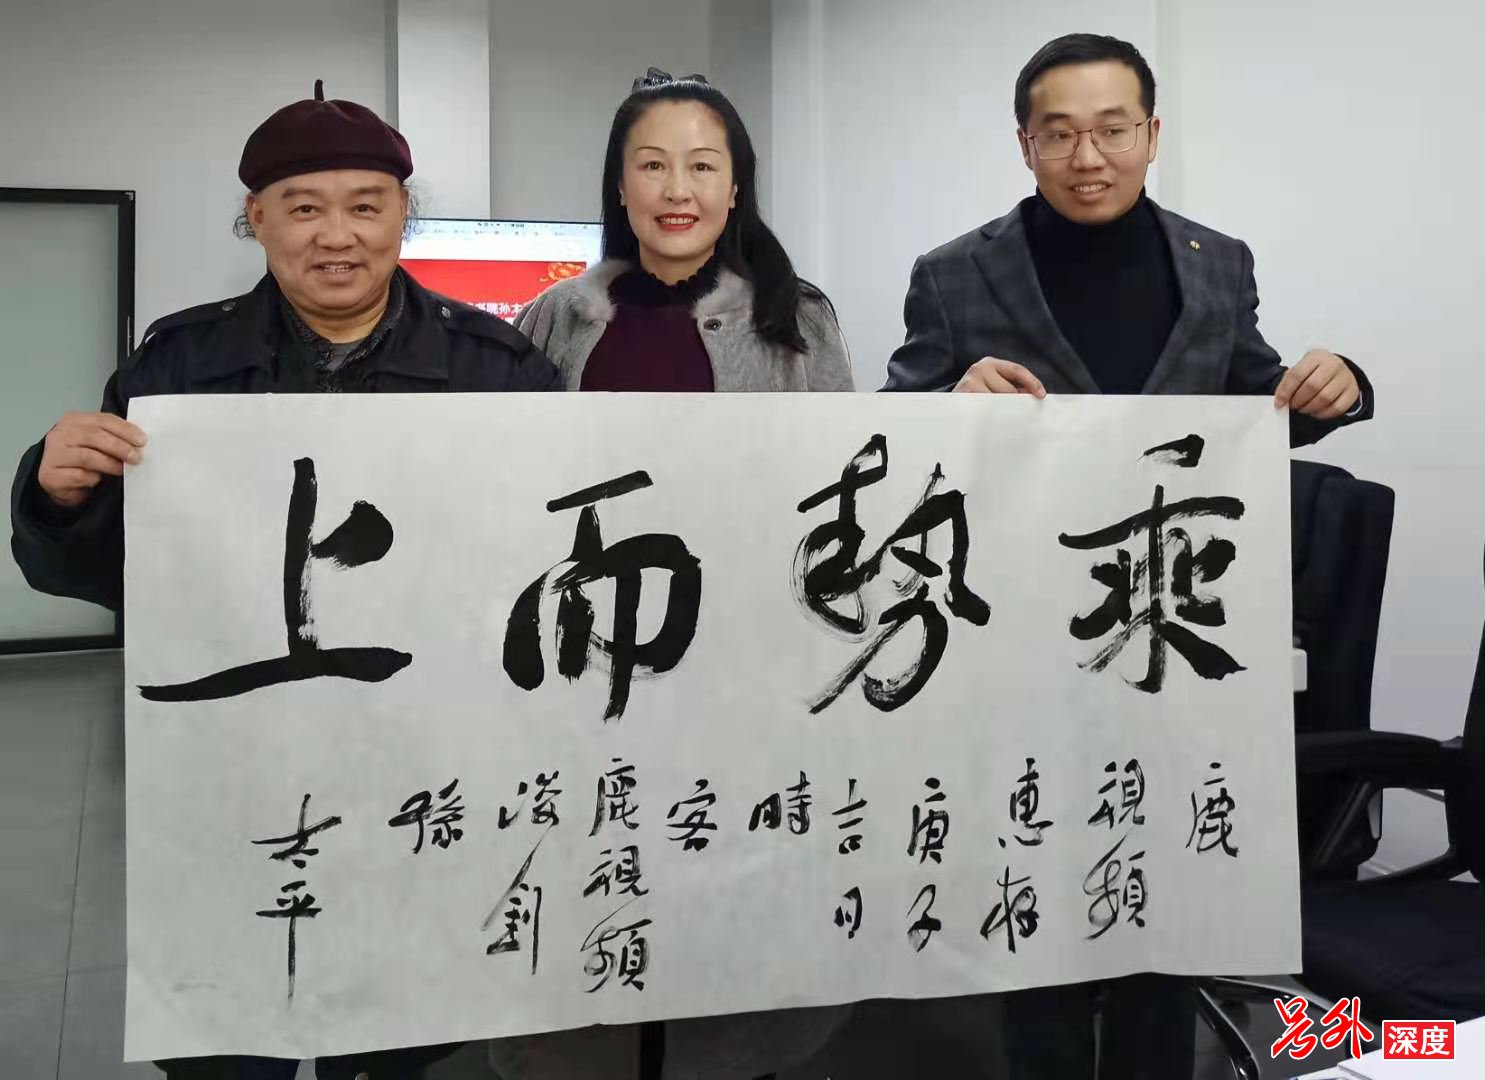 院孙太
乘勢而上
鹿
視頻
惠存
庚子
吉日
時
客
鹿視頻
孫
太平
号外
深度